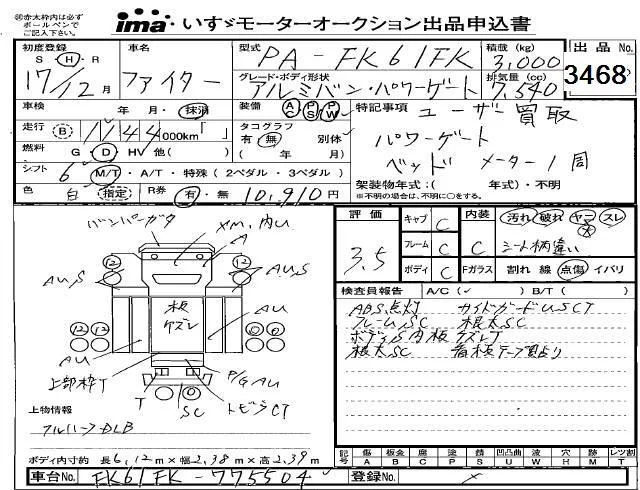 ◎赤太枠内は必ず
ボールペンで
ご記入下さい。
ima いすゞモーターオークション出品申込書
初度登録 S・H・R 17/12月
車名 ファイター
型式 PA-FK61FK
積載(kg) 3,000
出品No. 3468
グレード・ボディ形状 アルミバン・パワーゲート
排気量(cc) 7,540
車検 年・月・抹消
装備 AC PS PW
特記事項 ユーザー買取
走行 B 1144,000km「」
タコグラフ 有・無 別体
(年 月)
パワーゲート
燃料 G・D・HV 他( )
ベッド メーター1周
シフト 6 M/T・A/T・特殊(2ペダル・3ペダル)
色 白 指定
R券 有・無 10,910円
架装物年式:( 年式)・不明
※不明の場合は、不明に○をする。
バンパーガタ
ヤム,内U
A
評価 3.5
キャブ C
フレーム C
ボディ C
内装 C
汚れ 破れ ヤコ スレ
シート柄違い
Fガラス 割れ 線 点傷 イバリ
12 12
AU,S AU,S
検査員報告 A/C(✓) B/T( )
ABS点灯 サイドガードUSCT
フレームSC 根太SC
ボディS内板ケズレT
根太SC 看板テープ貼り
板
ケズレ
12 12
AU AU
上部枠T
P/G AU
T SC トビラCT
上物情報
アルハーフDLB
ボディ内寸約 長6,12m×幅2,38m×高2,39m
記号 傷A 板金B 腐C 歪P 塗P 錆S 凹凸曲U 凹W 穴H 跡M レツ割T
車台No. FK61FK-775504
登録No.